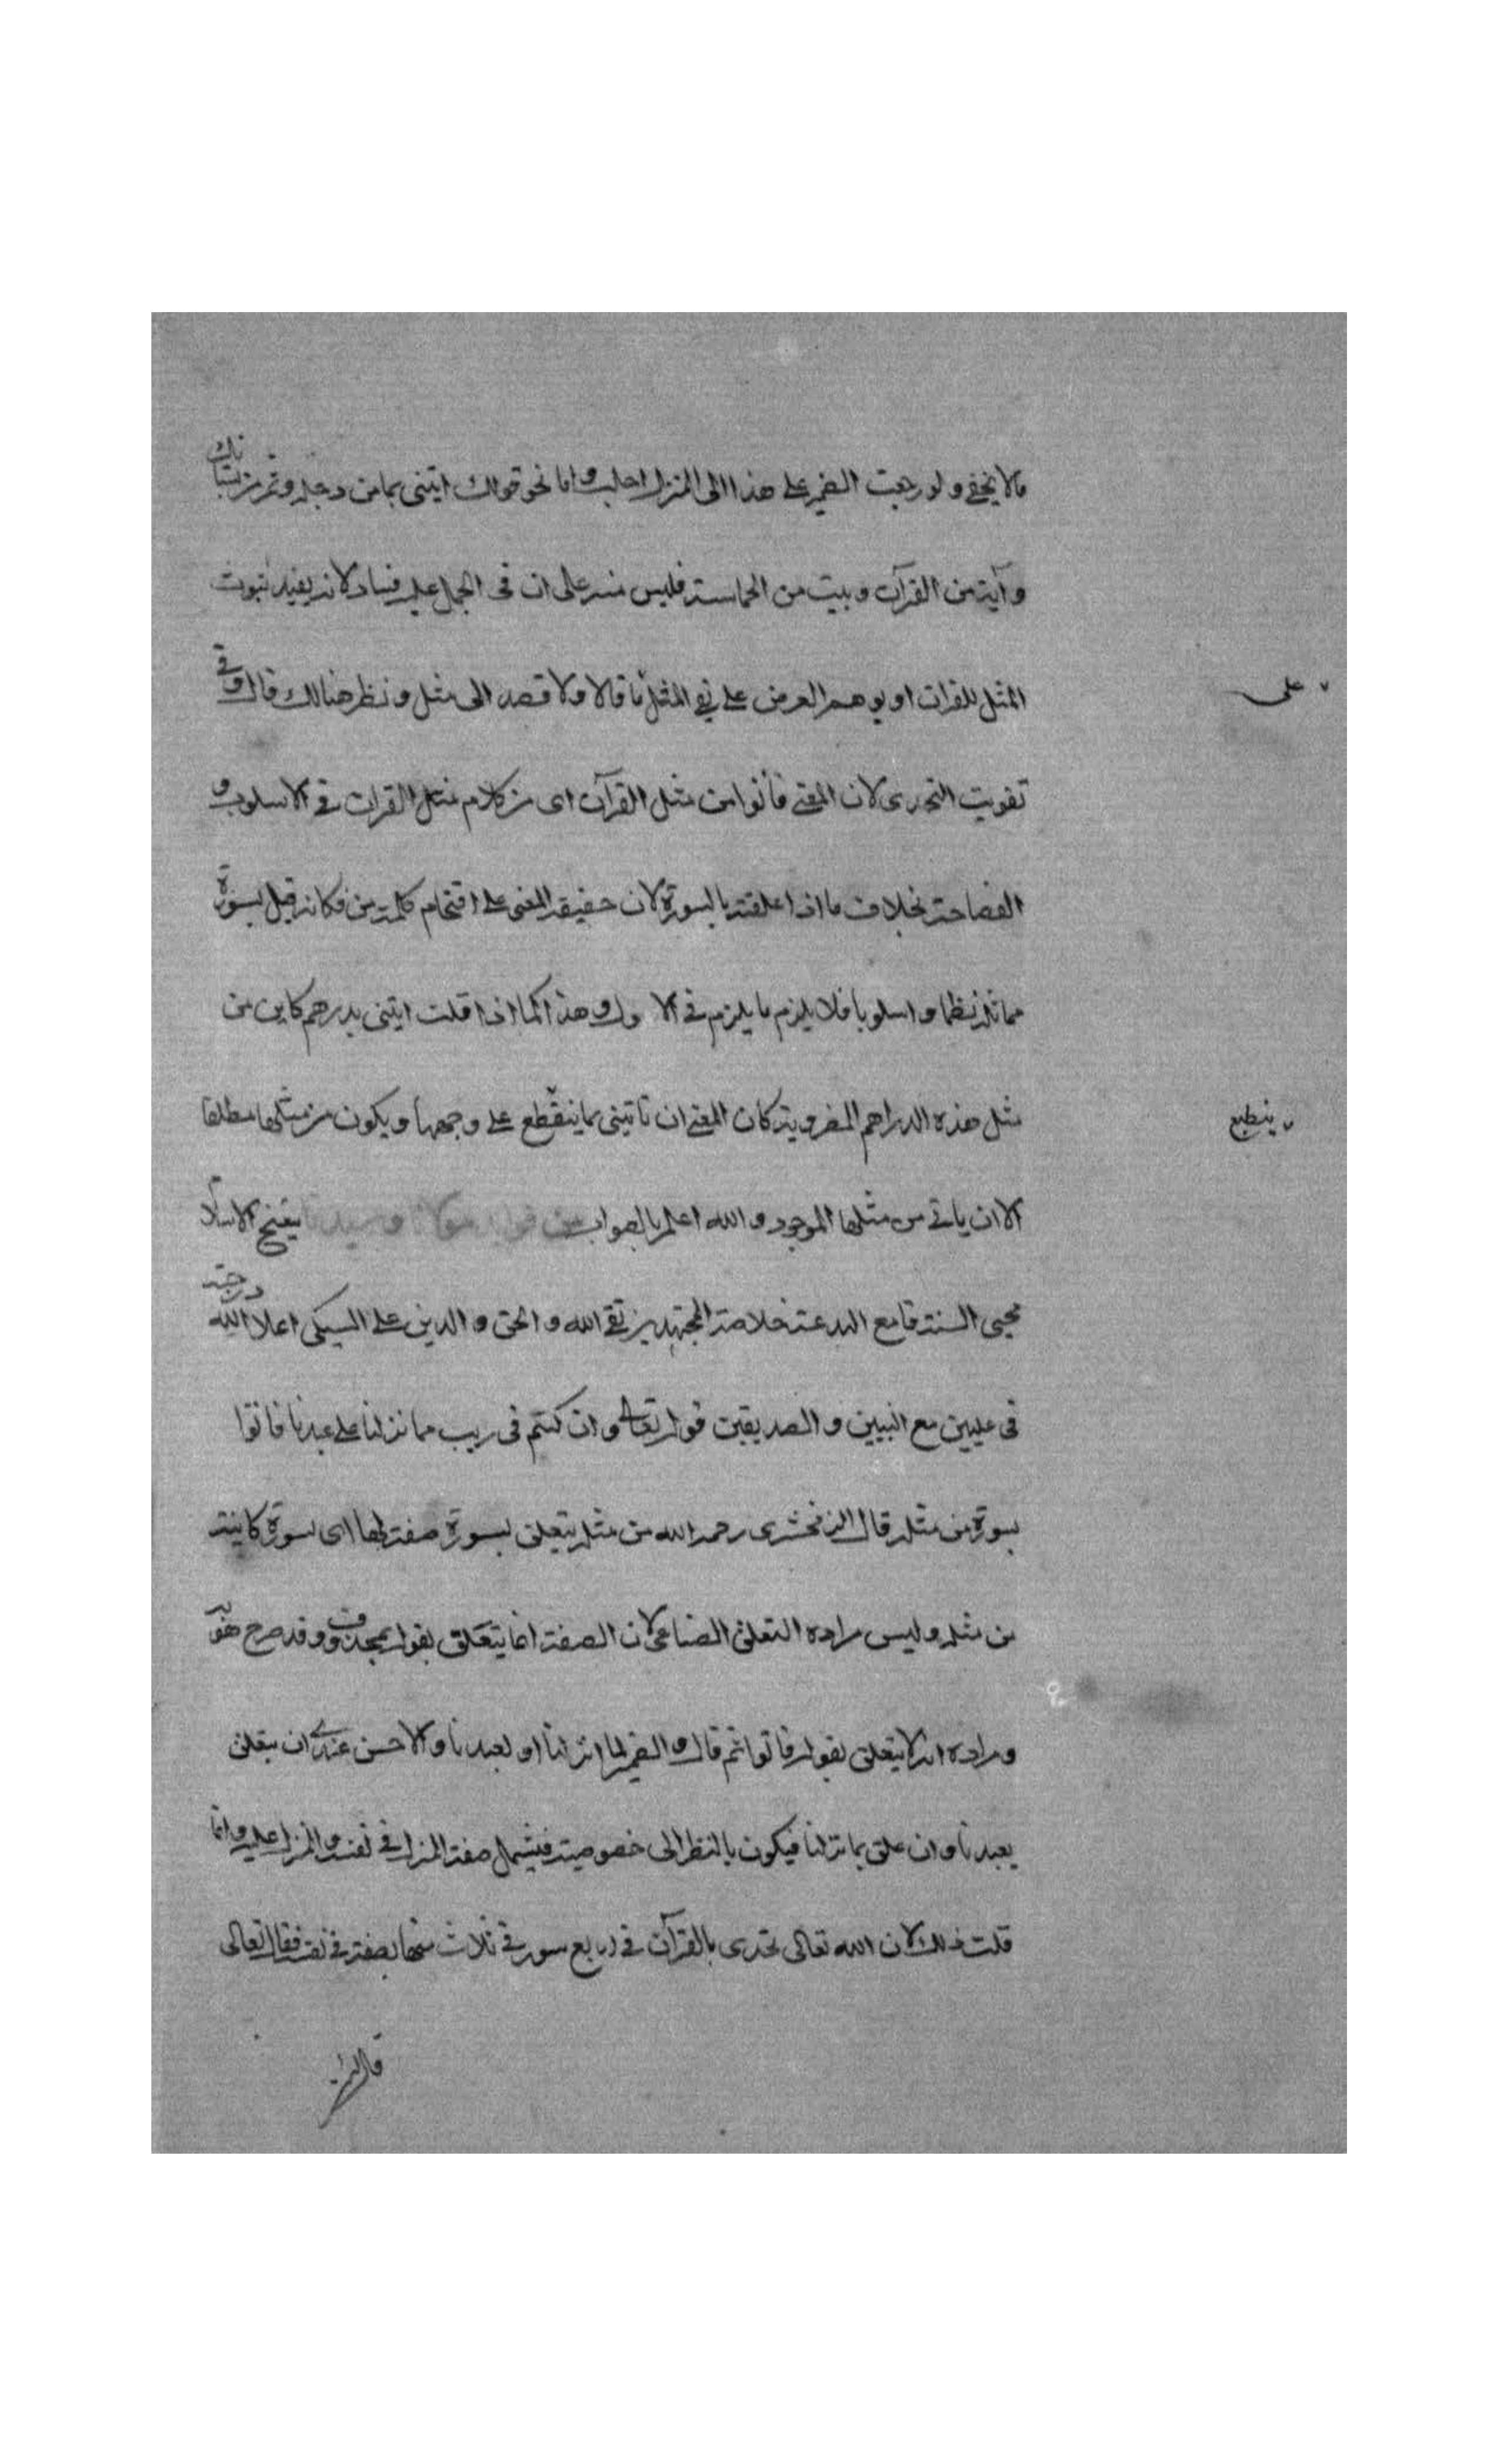 مالا يخفى ولو رجعت الضمير على هذا الى المنزل احلت واما نحو قولك ايتنى بماء من دجلة وتمر من بستانك
وآية من القرآن وبيت من الحماسة فليس منه على ان فى الحمل عليه فساد لانه يفيد ثبوت
المثل للقران او يوهم العرض على نفى المثل ما قالا ولا قصد الى مثل ونظر هنالك قال وفى
على
تفويت التحدى لان المعنى فأتوا من مثل القرآن اى من كلام مثل القران فى الاسلوب و
الفصاحة بخلاف ما اذا علقته بالسورة لان حقيقة المعنى على اقتحام كلمة من فكانه قيل بسورة
مماثلة نظما واسلوبا فلا يلزم ما يلزم فى الاول وهذا كما اذا قلت ايتنى بدرهم كاين من
مثل هذه الدراهم المضروبة كان المعنى ان تاتينى بما ينقطع على وجهها ويكون من مثلها مطلقا
ينطبع
الا ان ياتى من مثلها الموجود والله اعلم بالصواب من مولانا وسيدنا شيخ الاسلام
محيى السنة قامع البدعة خلاصة المجتهدين تقى الله والحق والدين على السبكى اعلا الله درجته
فى عليين مع النبيين والصديقين قوله تعالى وان كنتم فى ريب مما نزلنا على عبدنا فاتوا
بسورة من مثله قال الزمخشرى رحمه الله من مثله يتعلق بسورة صفة لها اى بسورة كاينة
من مثله وليس مراده التعلق الصناعى لان الصفة انما يتعلق بقوله بمحذوف وقد صرح هو
ومراده انه لا يتعلق بقوله فاتوا ثم قال والضمير لما نزلنا او لعبدنا والاحسن عندى ان يتعلق
بعبدنا وان علق بما نزلنا فيكون بالنظر الى خصوصيته فيشمل صفة المنزل فى نفسه والمنزل عليه وانما
قلت ذلك لان الله تعالى تحدى بالقرآن فى اربع سور فى ثلاث منها بصفته فى نفسه فقال تعالى